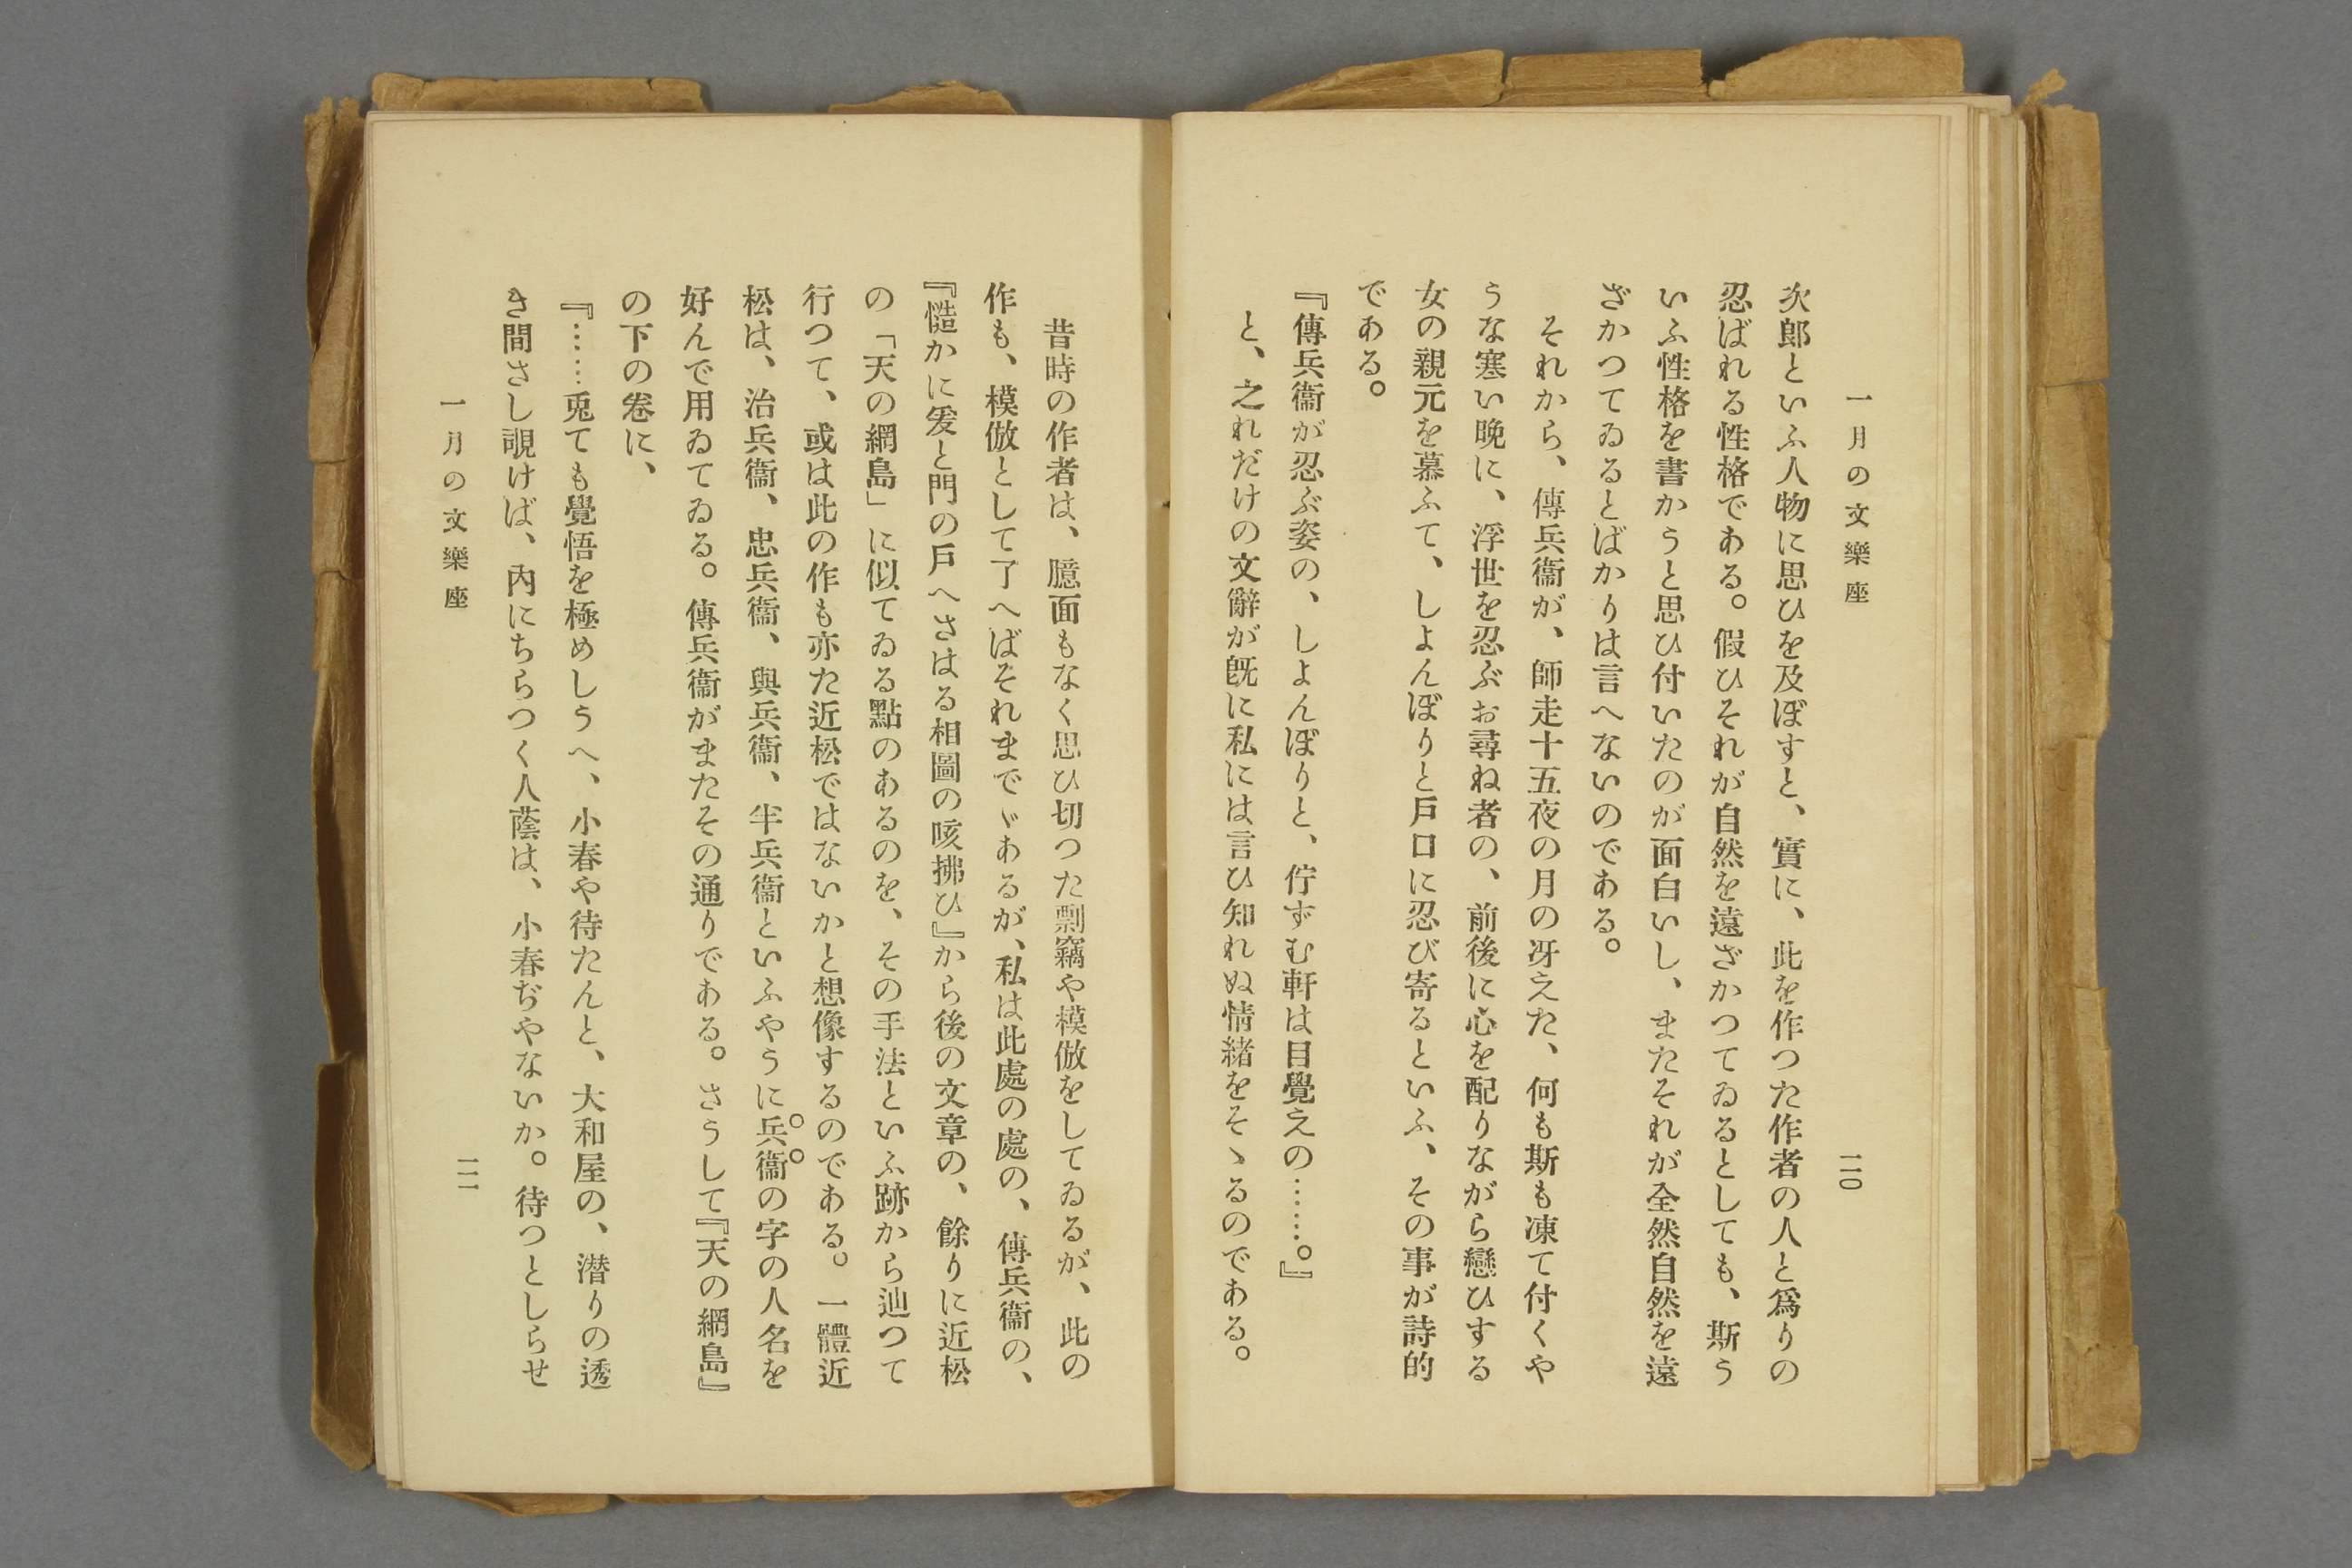 一月の文樂座
一一〇
次郎といふ人物に思ひを及ぼすと、實に、此を作つた作者の人と爲りの
忍ばれる性格である。假ひそれが自然を遠ざかつてゐるとしても、斯う
いふ性格を書かうと思ひ付いたのが面白いし、またそれが全然自然を遠
ざかつてゐるとばかりは言へないのである。
それから、傳兵衞が、師走十五夜の月の冴えた、何も斯も凍て付くや
うな寒い晩に、浮世を忍ぶお尋ね者の、前後に心を配りながら戀ひする
女の親元を慕ふて、しよんぼりと戸口に忍び寄るといふ、その事が詩的
である。
『傳兵衞が忍ぶ姿の、しよんぼりと、佇ずむ軒は目覺えの……。』
と、之れだけの文辭が既に私には言ひ知れぬ情緒をそゝるのである。
昔時の作者は、臆面もなく思ひ切つた剽竊や模倣をしてゐるが、此の
作も、模倣として了へばそれまでゞあるが、私は此處の處の、傳兵衞の、
『慥かに爰と門の戸へさはる相圖の咳拂ひ』から後の文章の、餘りに近松
の「天の網島」に似てゐる點のあるのを、その手法といふ跡から辿つて
行つて、或は此の作も亦た近松ではないかと想像するのである。一體近
松は、治兵衞、忠兵衞、與兵衞、半兵衞といふやうに兵衞の字の人名を
好んで用ゐてゐる。傳兵衞がまたその通りである。さうして『天の網島』
の下の卷に、
『……兎ても覺悟を極めしうへ、小春や待たんと、大和屋の、潜りの透
き間さし覗けば、內にちらつく人蔭は、小春ぢやないか。待つとしらせ
一月の文樂座
一一一